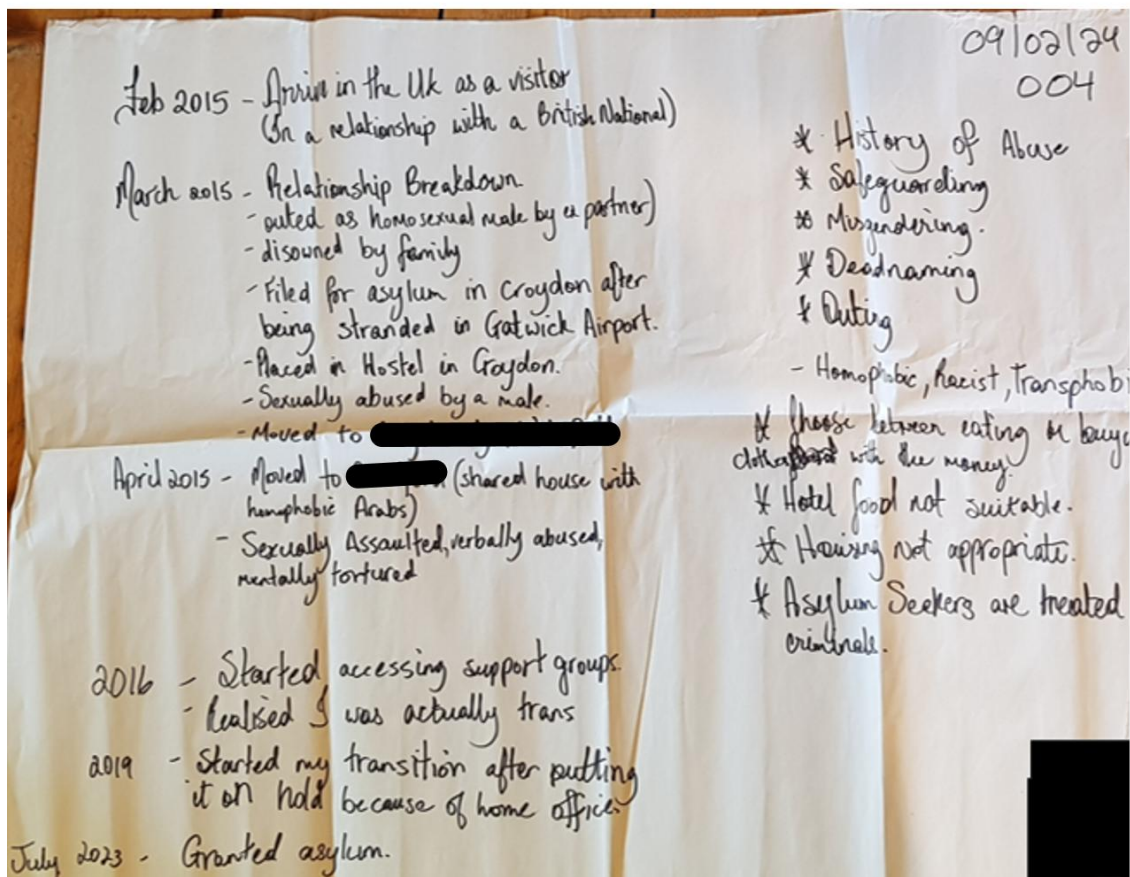 09/02/24
004
Feb 2015 - Arrive in the UK as a visitor
(In a relationship with a British National)
March 2015 - Relationship Breakdown
- outed as homosexual male by ex partner)
- disowned by family
- Filed for asylum in Croydon after
being stranded in Gatwick Airport.
- Placed in Hostel in Croydon.
- Sexually abused by a male.
- Moved to
April 2015 - Moved to (shared house with
homophobic Arabs)
- Sexually Assaulted, verbally abused,
mentally tortured
2016 - Started accessing support groups.
- Realised I was actually trans
2019 - Started my transition after putting
it on hold because of home office.
July 2023 - Granted asylum.
* History of Abuse
* Safeguarding
* Misgendering.
* Deadnaming
* Outing
- Homophobic, Racist, Transphobi
* Choose between eating or buyi
clothes with the money.
* Hotel food not suitable.
* Housing not appropriate.
* Asylum Seekers are treated
criminals.